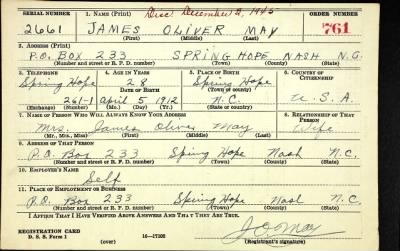 SERIAL NUMBER 1. NAME (Print) Disc. December 2, 1945 ORDER NUMBER
2661 JAMES OLIVER MAY 761
(First) (Middle) (Last)
2. ADDRESS (Print)
P.O. BOX 233 SPRING HOPE NASH N.C.
(Number and street or R. F. D. number) (Town) (County) (State)
3. TELEPHONE 4. AGE IN YEARS 5. PLACE OF BIRTH 6. COUNTRY OF CITIZENSHIP
Spring Hope 28 Spring Hope
DATE OF BIRTH (Town or county)
261-1 April 5 1912 N.C. U.S.A.
(Exchange) (Number) (Mo.) (Day) (Yr.) (State or country)
7. NAME OF PERSON WHO WILL ALWAYS KNOW YOUR ADDRESS 8. RELATIONSHIP OF THAT PERSON
Mrs. James Oliver May Wife
(Mr., Mrs., Miss) (First) (Middle) (Last)
9. ADDRESS OF THAT PERSON
P.O. Box 233 Spring Hope Nash N.C.
(Number and street or R. F. D. number) (Town) (County) (State)
10. EMPLOYER'S NAME
Self
11. PLACE OF EMPLOYMENT OR BUSINESS
P.O. Box 233 Spring Hope Nash N.C.
(Number and street or R. F. D. number) (Town) (County) (State)
I AFFIRM THAT I HAVE VERIFIED ABOVE ANSWERS AND THAT THEY ARE TRUE.
REGISTRATION CARD J.O. May
D. S. S. Form 1 (over) 16—17105 (Registrant's signature)